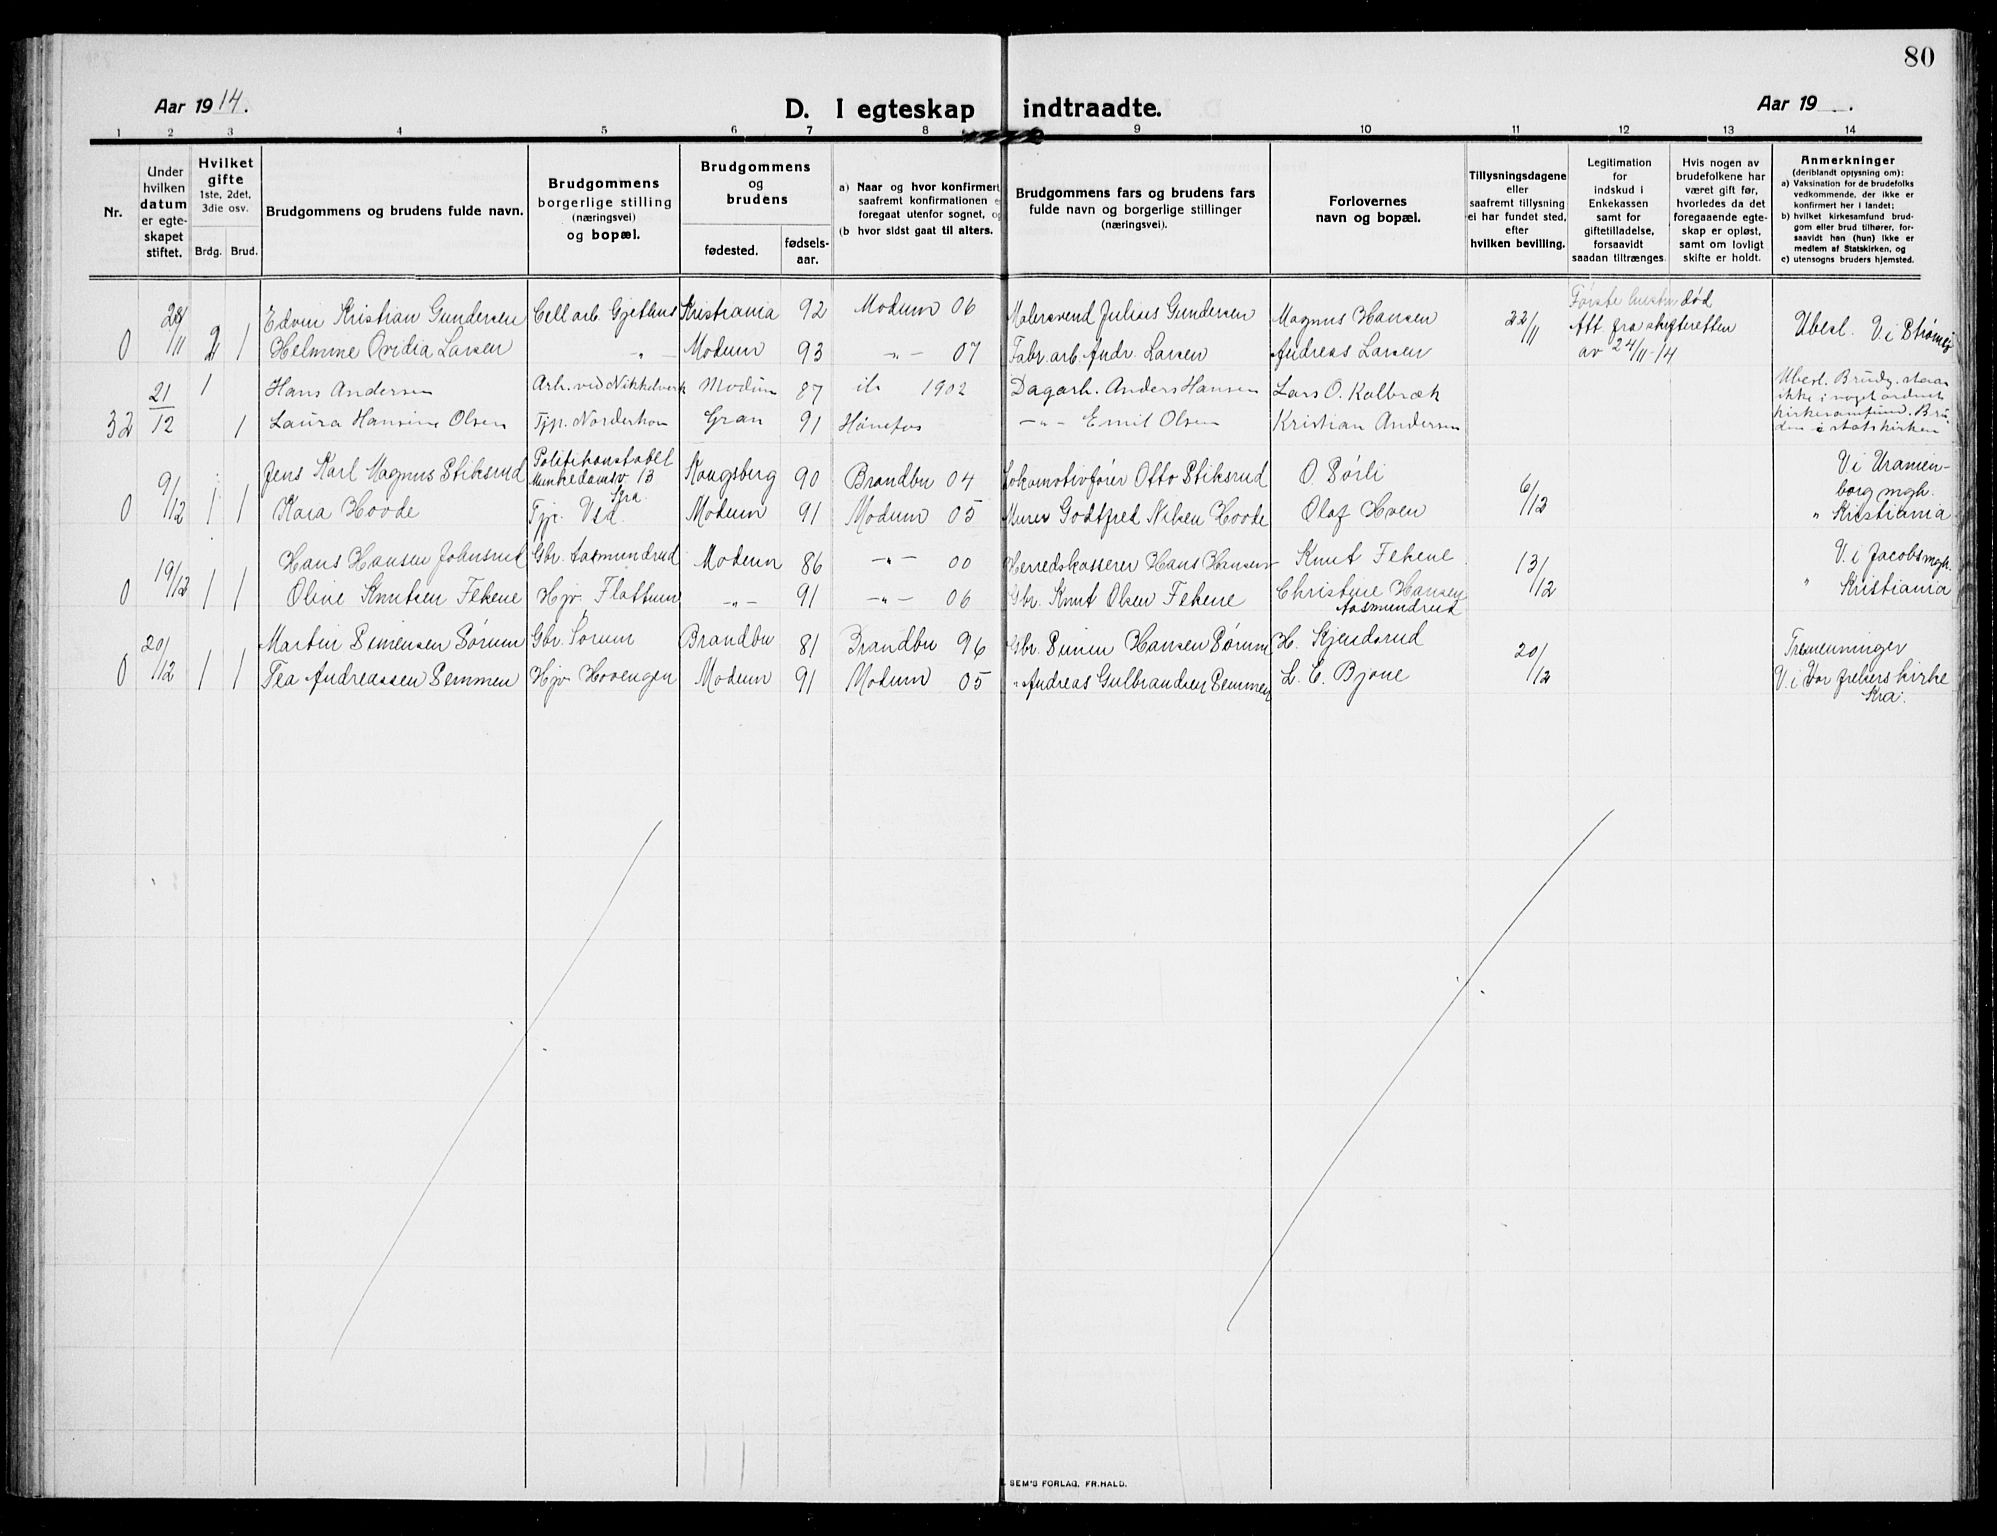 80
Aar 1914.
D. I egteskap indtraadte.
Aar 19 .
1 2 3 4 5 6 7 8 9 10 11 12 13 14
Nr.
Under hvilken datum er egteskapet stiftet.
Hvilket gifte 1ste, 2det, 3die osv.
Brdg. Brud.
Brudgommens og brudens fulde navn.
Brudgommens borgerlige stilling (næringsvei) og bopæl.
Brudgommens og brudens
fødested. fødselsaar.
a) Naar og hvor konfirmert, saafremt konfirmationen foregaat utenfor sognet,
(b hvor sidst gaat til alters.
Brudgommens fars og brudens fars fulde navn og borgerlige stillinger (næringsvei).
Forlovernes navn og bopæl.
Tillysningsdagene eller saafremt tillysning ei har fundet sted, efter hvilken bevilling.
Legitimation for indskud i Enkekassen samt for giftetilladelse, forsaavidt saadan tiltrænges.
Hvis nogen av brudefolkene har været gift før, hvorledes da det foregaaende egteskap er opløst, samt om lovligt skifte er holdt.
Anmerkninger (deriblandt oplysning om): a) Vaksination for de brudefolks vedkommende, der ikke er konfirmert her i landet; b) hvilket kirkesamfund brudgom eller brud tilhører, forsaavidt han (hun) ikke er medlem af Statskirken, og c) utensogns bruders hjemsted.
28/11 2 Edvin Kristian Gundersen Cell arb Gjethus Kristiania 92 Modum 06 Malersvend Julius Gundersen Magnus Hansen 22/11 Første hustru død
0 1 Helmine Ovidia Larsen -"- Modum 93 -"- 07 Fabr. arb. Andr. Larsen Andreas Larsen Att. fra skifteretten av 24/11-14 Ubesl. V. i
21/12 1 Hans Andersen Arb. ved Nikkelverk Modum 87 ib 1902 Dagarb. Anders Hansen Lars O. Kolbræk Ubesl. Brudg. staar ikke i noget ordnet kirkesamfund. Bruden i statskirken
32 1 Laura Hansine Olsen Tjp. Norderhov Gran 91 Hønefos -"- Emil Olsen Kristian Andersen
9/12 1 Jens Karl Magnus Stiksrud Politikonstabel Munkedamsv 13 Kra. Kongsberg 90 Brandbu 04 Lokomotivfører Otto Stiksrud O. Sørli 6/12 V. i Uranienborg mgh.
0 1 Kara Hovde Tjp. Modum 91 Modum 05 Murer Godtfred Nilsen Hovde Olaf Hven " Kristiania
19/12 1 Hans Hansen Johnsrud Gbr. Aasmundrud Modum 86 -"- 00 Herredskasserer Hans Hansen Knut Fekene 13/12 V. i Jacobs mgh.
0 1 Oline Knutsen Fekene Hjv. Flattum -"- 91 -"- 06 Gbr. Knut Olsen Fekene Christine Hansen Aasmundrud " Kristiania
20/12 1 Martin Simensen Sørum Gbr. Sørum Brandbu 81 Brandbu 96 Gbr. Simen Hansen Sørum H. Kjendsrud 20/12 Tremenninger
0 1 Tea Andreassen Semmen Hjv. Hovengen Modum 91 Modum 05 " Andreas Gulbrandsen Semmen L. E. Bjøne V. i Vor frelsers kirke Kra.
SEM'S FORLAG, FR. HALD.